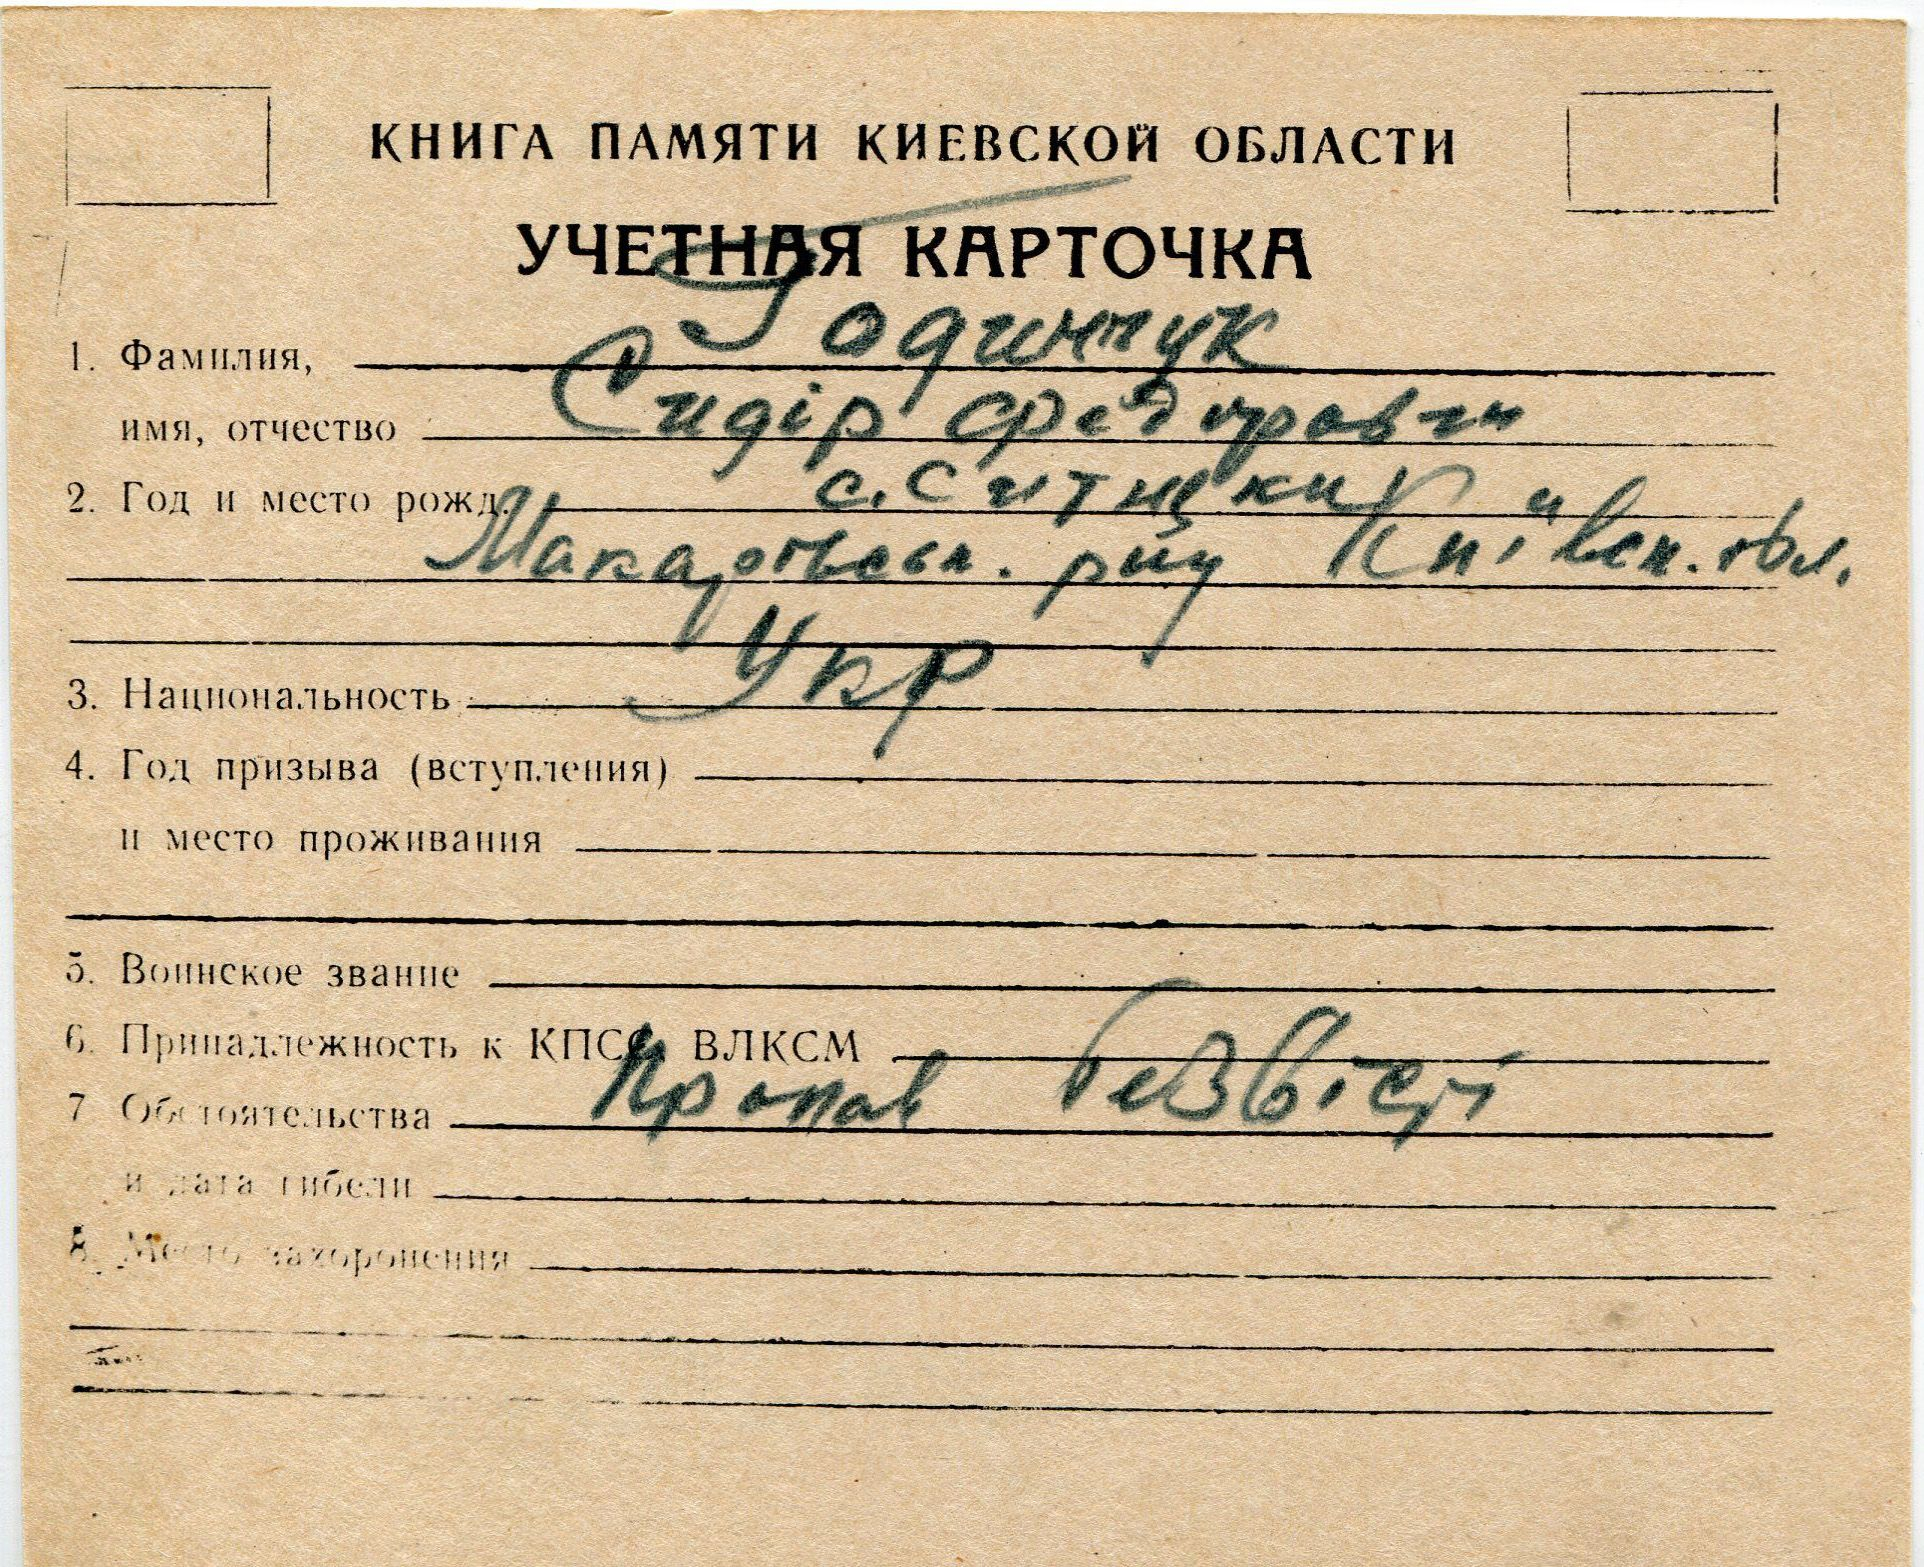 КНИГА ПАМЯТИ КИЕВСКОЙ ОБЛАСТИ
УЧЕТНАЯ КАРТОЧКА
1. Фамилия, Годинчук
имя, отчество Сидір Федорович
2. Год и место рожд. с. Ситняки
Макарівськ. р-ну Київськ. обл.
3. Национальность Укр
4. Год призыва (вступления)
и место проживания
5. Воинское звание
6. Принадлежность к КПСС, ВЛКСМ
7 Обстоятельства Пропав безвісті
и дата гибели
8. Место захоронения